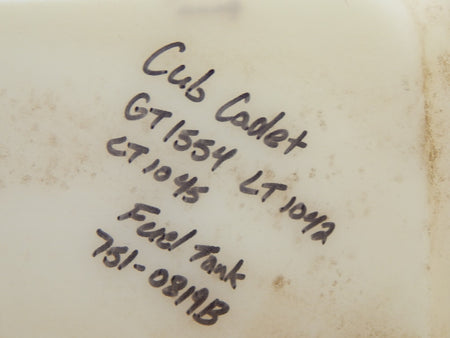 Cub Cadet
GT1554 LT1042
LT1045
Fuel Tank
751-0819B